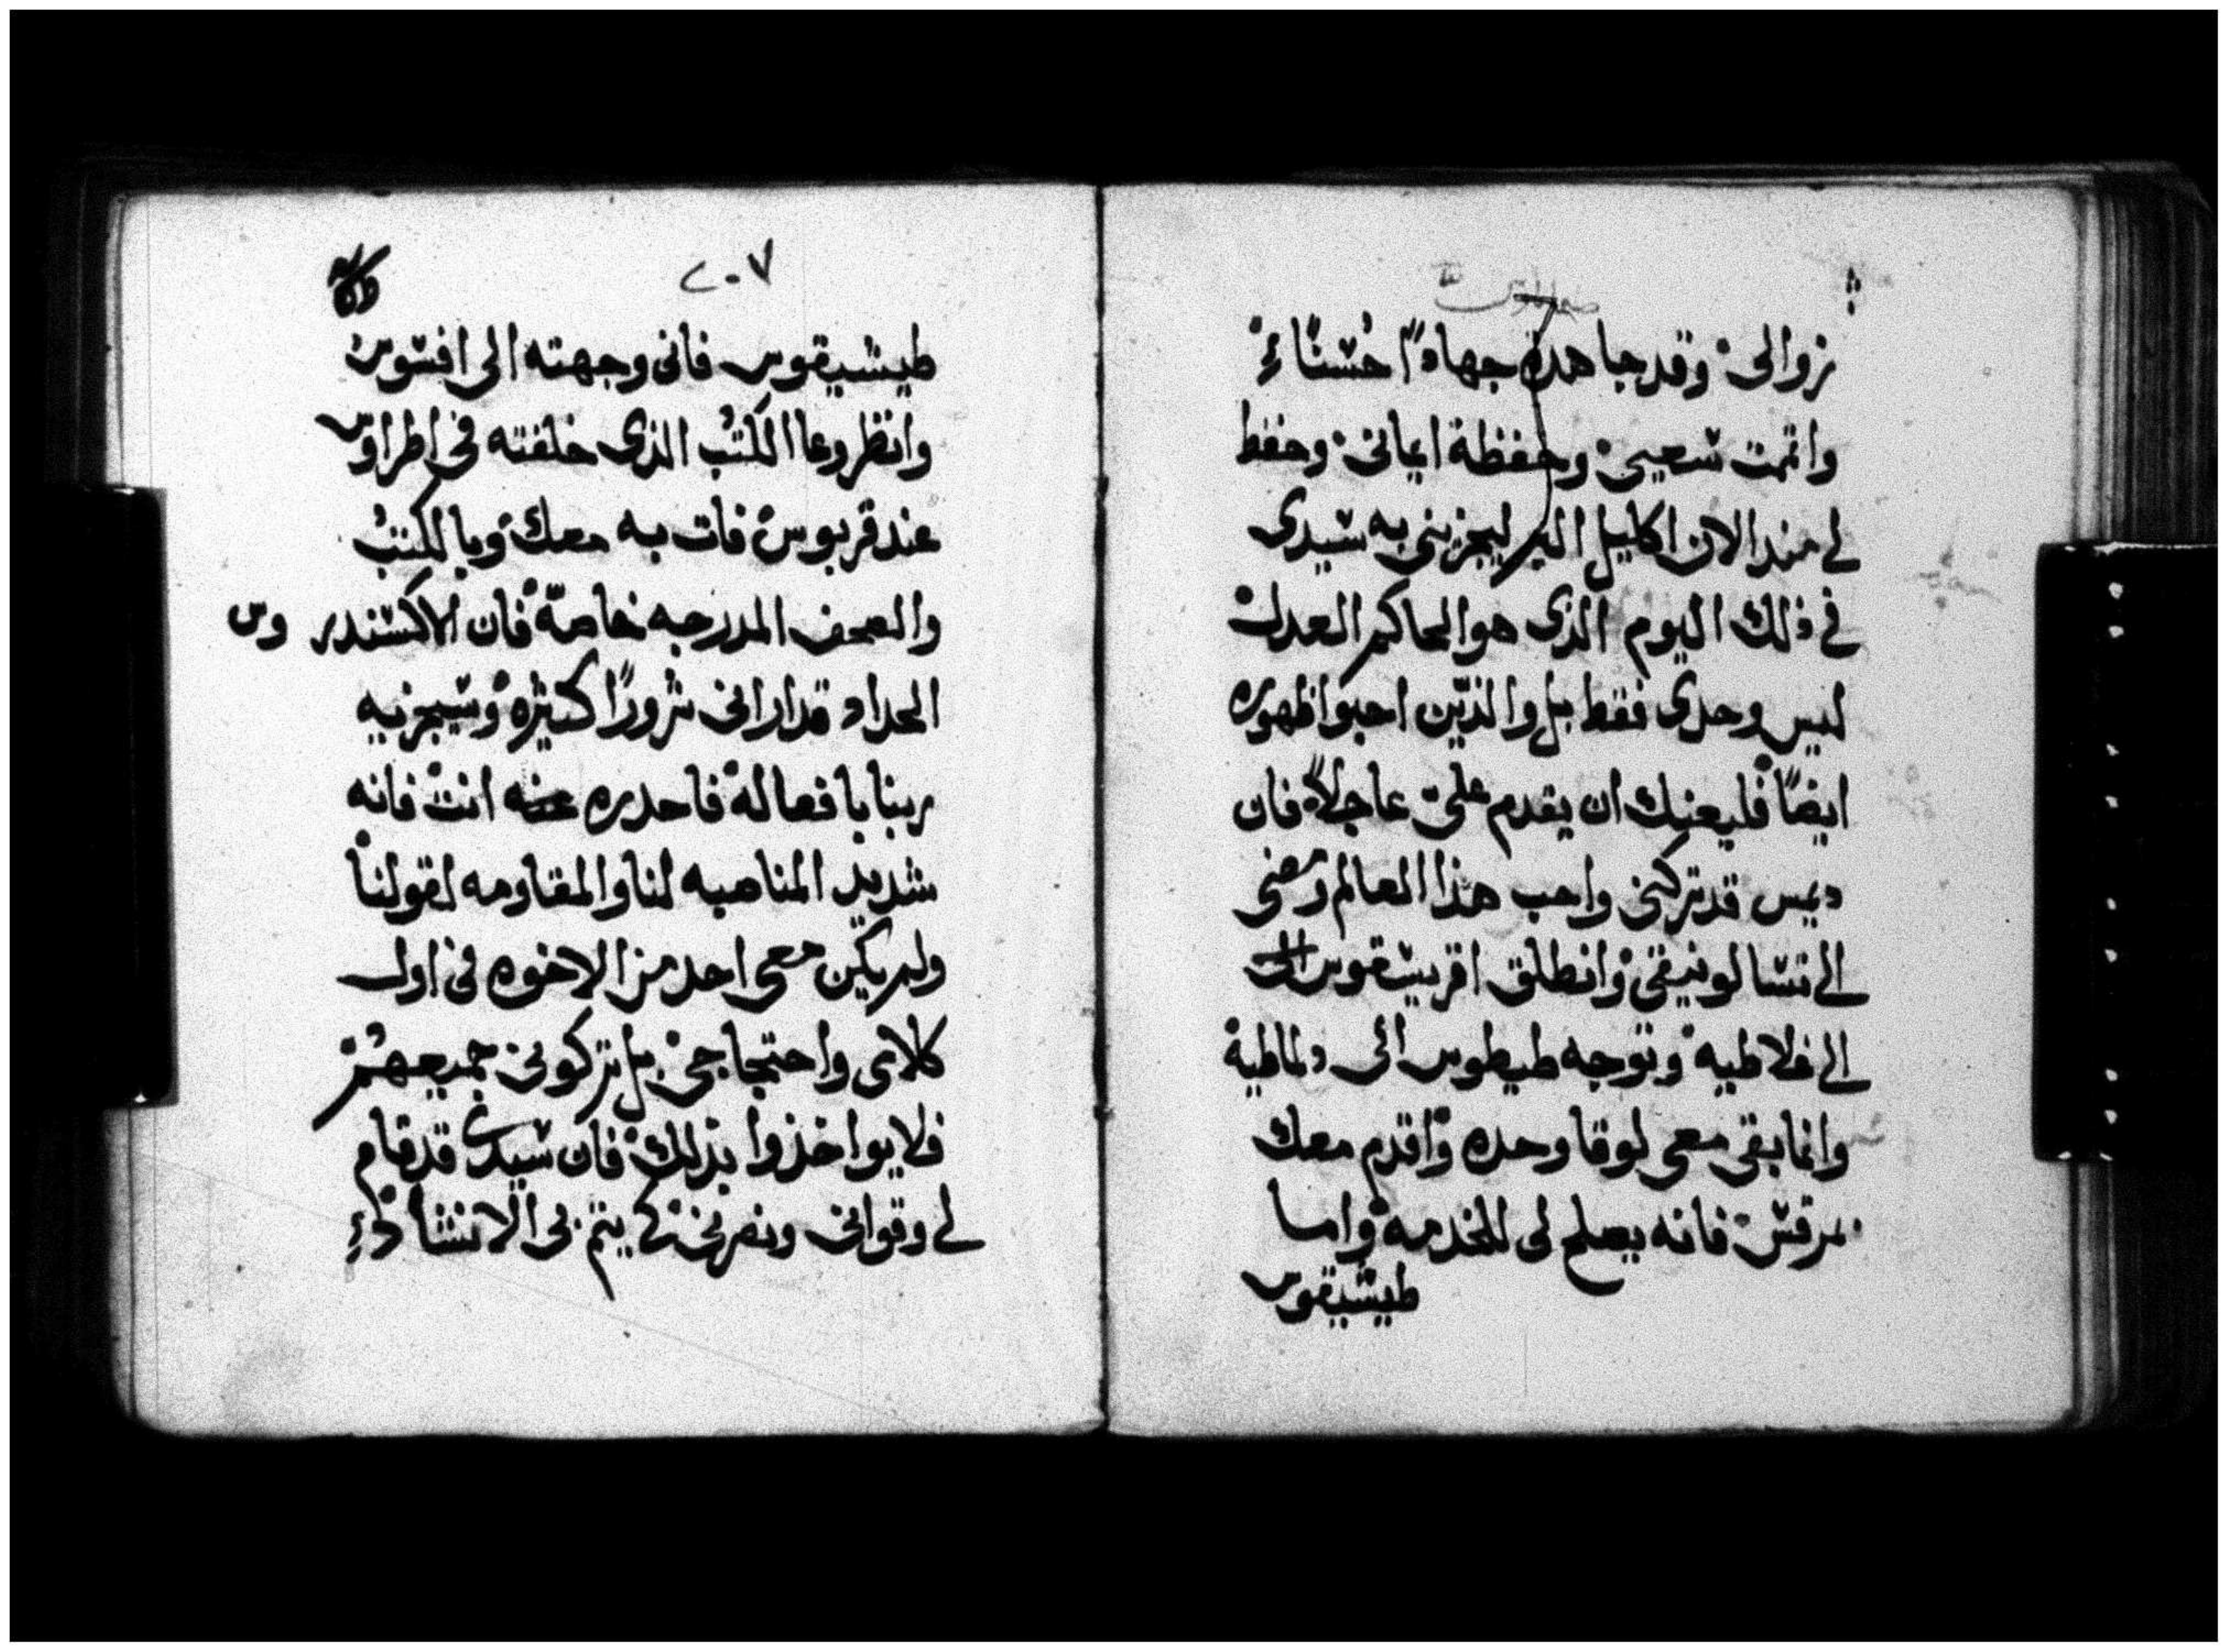 زوالى وقد جاهدة جهادًا حسنًا
واتممت سعيى وحفظة ايمانى وحفظ
لى منذ الان اكليل البر ليجزينى به سيدى
فى ذلك اليوم الذى هو الحاكم العدل
ليس وحدى فقط بل والذين احبوا ظهوره
ايضًا فليعنك ان يقدم على عاجلاً فان
ديمس قد تركنى واحب هذا العالم ومضى
الى تسالونيقى وانطلق اقريسقوس
الى غلاطيه وتوجه طيطوس الى دلماطية
وانما بقى معى لوقا وحده واقدم معك
بمرقس فانه يصلح لى للخدمه واما
طيشيقوس
٢٠٧
طيشيقوس فانى وجهته الى افسوس
وانظر وعا الكتب الذى خلفته فى اطراوس
عند قربوس فات به معك وبالكتب
والصحف المدرجه خاصّة فان الاكسندروس
الحداد قد ارانى شرورًا كثيرة وسيجزيه
ربنا بافعاله فاحدره انت فانه
شديد المناصبه لنا والمقاومه لقولنا
ولم يكن معى احد من الاخوه فى اول
كلامى واحتجاجى بل تركونى جميعهم
فلا يواخذوا بذلك فان سيدى قد قام
لى وقوانى ونصرنى كى يتم بى الانشا